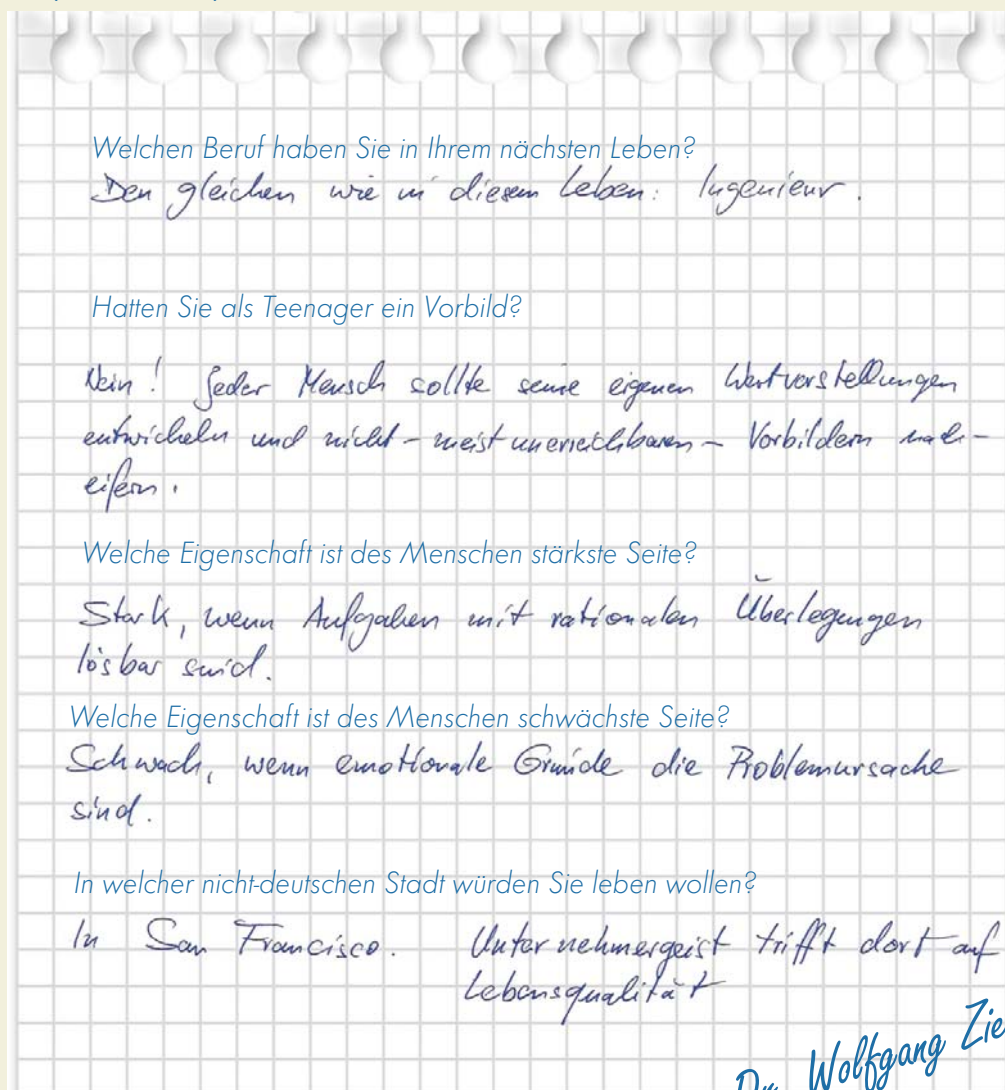 Welchen Beruf haben Sie in Ihrem nächsten Leben?
Den gleichen wie in diesem Leben: Ingenieur.
Hatten Sie als Teenager ein Vorbild?
Nein! Jeder Mensch sollte seine eigenen Wertvorstellungen
entwickeln und nicht - meist unerreichbaren - Vorbildern nach-
eifern.
Welche Eigenschaft ist des Menschen stärkste Seite?
Stark, wenn Aufgaben mit rationalen Überlegungen
lösbar sind.
Welche Eigenschaft ist des Menschen schwächste Seite?
Schwach, wenn emotionale Gründe die Problemursache
sind.
In welcher nicht-deutschen Stadt würden Sie leben wollen?
In San Francisco. Unternehmergeist trifft dort auf
Lebensqualität
Dr. Wolfgang Zie